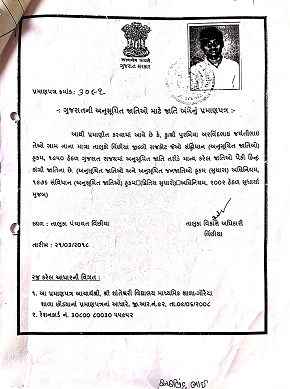 ગુજરાત સરકાર
પ્રમાણપત્ર ક્રમાંક: ૩૦૯૧
-: ગુજરાતની અનુસૂચિત જાતિઓ માટે જાતિ અંગેનું પ્રમાણપત્ર :-
આથી પ્રમાણીત કરવામાં આવે છે કે, કુ/શ્રી પુરબિયા અરવિંદલાલ જયંતીલાલ
તેઓ ગામ નાના માત્રા તાલુકો વિંછીયા જીલ્લો રાજકોટ જેઓ સંવિધાન (અનુસૂચિત જાતિઓ)
હુકમ, ૧૯૫૦ હેઠળ ગુજરાત રાજ્યમાં અનુસૂચિત જાતિ તરીકે માન્ય કરેલ જાતિઓ પૈકી હિન્દુ
જાતિના છે. (અનુસૂચિત જાતિઓ અને અનુસૂચિત જનજાતિઓ હુકમ (સુધારા) અધિનિયમ,
૧૯૭૬ સંવિધાન (અનુસૂચિત જાતિઓ) હુકમ (દ્વિતિય સુધારો) અધિનિયમ, ૨૦૦૨ હેઠળ સુધાર્યા
મુજબ)
સ્થળ : તાલુકા પંચાયત વિંછીયા
તાલુકા વિકાસ અધિકારી
વિંછીયા
તારીખ : ૨૧/૦૩/૨૦૧૮
રજુ કરેલ આધારની વિગત :
૧. આ પ્રમાણપત્ર આચાર્યશ્રી, શ્રી શાંતેશ્વરી વિદ્યાલય માધ્યમિક શાળા-ગોરૈયા
શાળા છોડ્યાનાં પ્રમાણપત્રનાં આધારે, જી.આર.નં.૬૨, તા.૦૯/૦૬/૨૦૦૮
૨. રેશનકાર્ડ નં. ૩૦૮૦૦ ૮૦૦૩૦ ૫૫૯૫૨